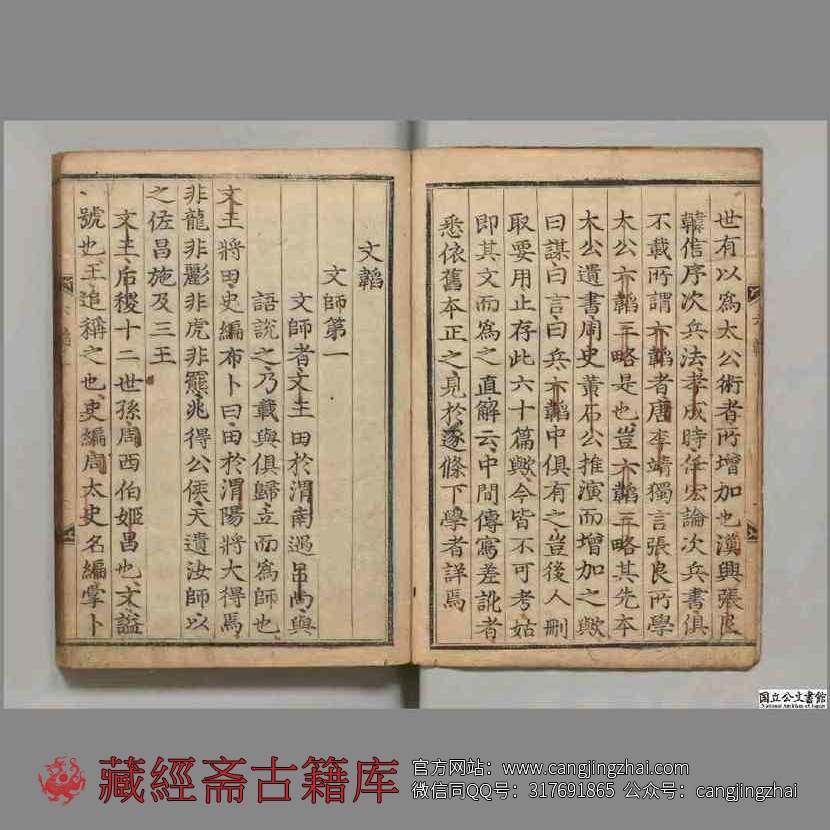 世有以爲太公術者所增加也漢興張良
韓信序次兵法孝成時任宏論次兵書俱
不載所謂六韜者唐李靖獨言張良所學
太公六韜三略是也豈六韜三略其先本
太公遺書周史黃石公推演而增加之歟
曰謀曰言曰兵六韜中俱有之豈後人刪
取要用止存此六十篇歟今皆不可考姑
即其文而爲之直解云中間傳寫差訛者
悉依舊本正之見於逐條下學者詳焉
文韜
文師第一
文師者文王田於渭南遇呂尚與
語說之乃載與俱歸立而爲師也
文王將田史編布卜曰田於渭陽將大得焉
非龍非彲非虎非羆兆得公侯天遺汝師以
之佐昌施及三王
文王后稷十二世孫周西伯姬昌也文謚
號也王追稱之也史編周太史名編掌卜
国立公文書館
National Archives of Japan
藏經斋古籍库
官方网站：www.cangjingzhai.com
微信同QQ号：317691865 公众号：cangjingzhai